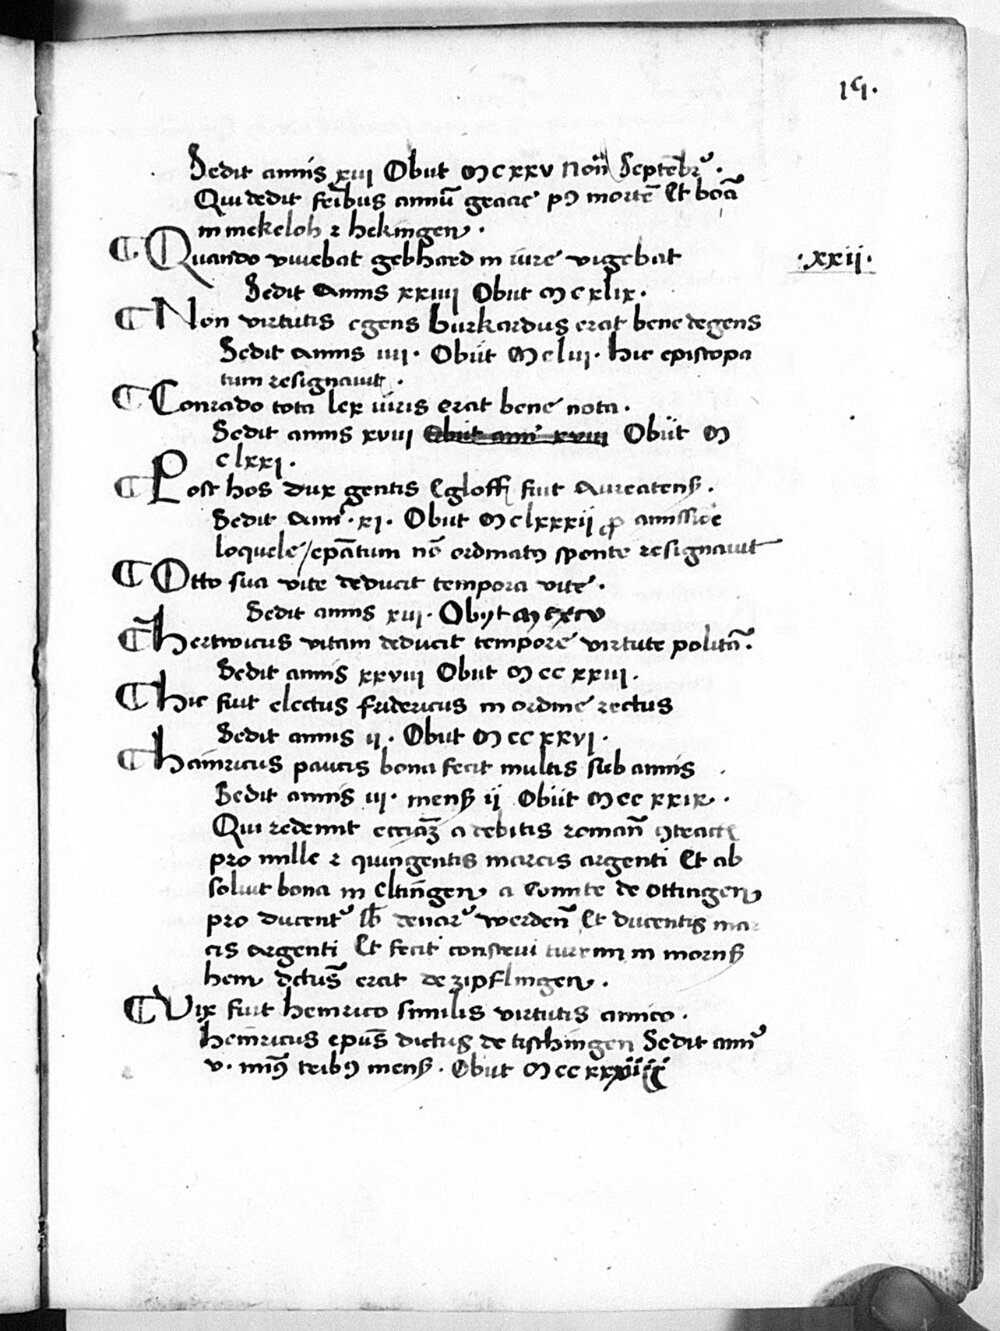 15.
Sedit annis xxiij Obiit Mcxxv Non Septembr
Qui dedit fratribus annu gracie post morte Et bona
in mekeloh et hekingen .
Quando vivebat gebhard in iure vigebat .xxij.
Sedit Annis xxiiij Obiit Mcxlix .
Non virtutis egens burkardus erat bene degens
Sedit Annis iiij . Obiit Mclvij . hic episcopa
tum resignavit .
Conrado tota lex iuris erat bene nota .
Sedit annis xviij Obiit ann xviij Obiit M
clxxj .
Post hos dux gentis Egloff fuit Aureatens .
Sedit Ann . xj . Obiit Mclxxxij pro amissione
loquele / epatum no ordinatus sponte resignavit
Otto sua vite deducit tempora vite .
Sedit annis xiij . Obijt Mcxcv
hertwicus vitam deducit tempore virtute polita .
Sedit annis xxviij Obiit M cc xxiij .
hic fuit electus fridericus in ordine rectus
Sedit annis ij . Obiit M cc xxvj .
hainricus paucis bona fecit multis sub annis .
Sedit annis iij . mens ij Obiit M cc xxix .
Qui redemit ecciam a debitis roman contracte
pro mille et quingentis marcis argenti Et ab
solvit bona in Eltingen a Comite de Ottingen
pro ducent lb denar werden Et ducentis mar
cis argenti Et fecit construi turrim in morns
hem dctus erat de zipflingen .
Vix fuit heinrico similis virtutis amico .
heinricus epus dictus de tischingen Sedit ann
v . min tribus mens . Obiit M cc xxxiiij